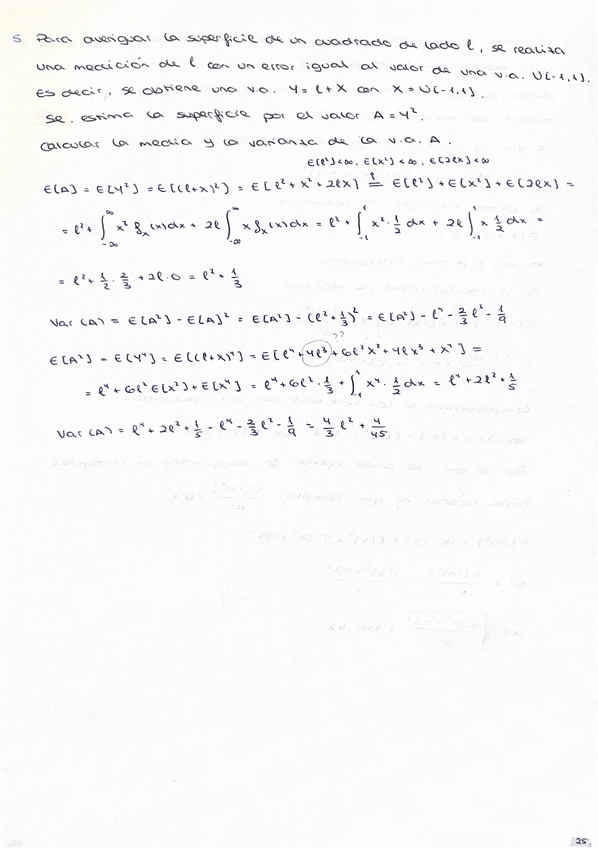 5 Para averiguar la superficie de un cuadrado de lado l, se realiza
una medición de l con un error igual al valor de una v.a. U[-1,1].
Es decir, se obtiene una v.a. Y = l + X con X = U[-1,1].
Se. estima la superficie por el valor A = Y².
Calcular la media y la varianza de la v.a. A.
E[l²]<∞, E[X²]<∞, E[2lX]<∞
E[A] = E[Y²] = E[(l+X)²] = E[l² + X² + 2lX] =↑ E[l²] + E[X²] + E[2lX] =
= l² + ∫_{-∞}^{∞} x² f_x(x)dx + 2l ∫_{-∞}^{∞} x f_x(x)dx = l² + ∫_{-1}^{1} x² · 1/2 dx + 2l ∫_{-1}^{1} x 1/2 dx =
= l² + 1/2 · 2/3 + 2l·0 = l² + 1/3
Var(A) = E[A²] - E[A]² = E[A²] - (l² + 1/3)² = E[A²] - l⁴ - 2/3 l² - 1/9
??
E[A²] = E[Y⁴] = E[(l+X)⁴] = E[l⁴ + 4l³ + 6l²X² + 4lX³ + X⁴] =
= l⁴ + 6l² E[X²] + E[X⁴] = l⁴ + 6l² · 1/3 + ∫_{-1}^{1} x⁴ · 1/2 dx = l⁴ + 2l² + 1/5
Var(A) = l⁴ + 2l² + 1/5 - l⁴ - 2/3 l² - 1/9 = 4/3 l² + 4/45
25.